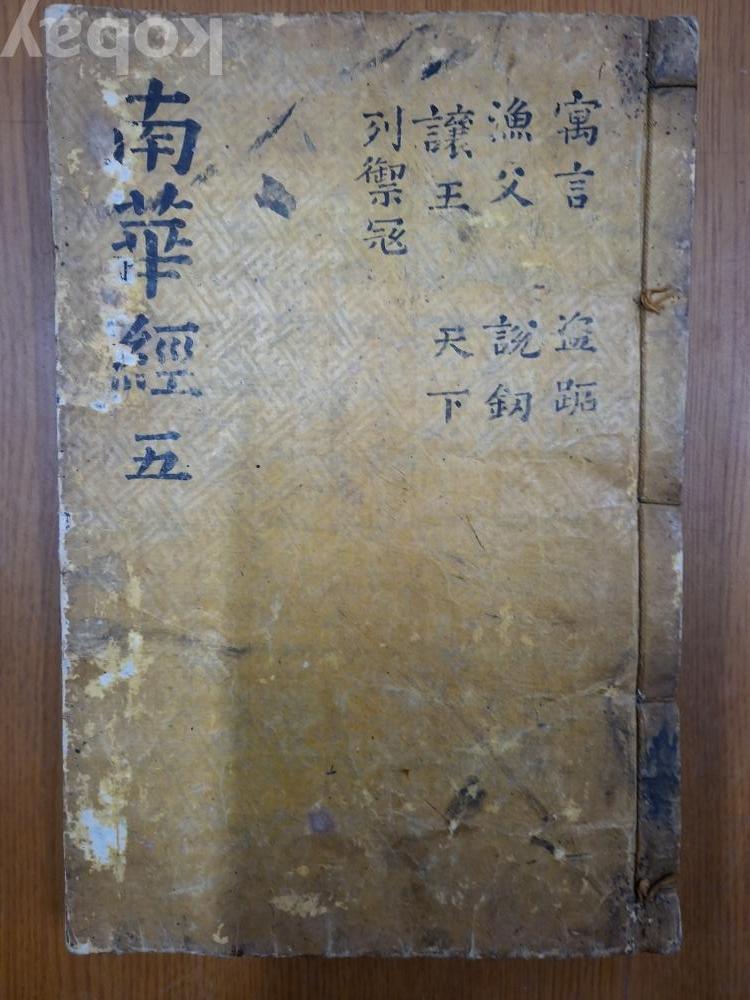 kobay
寓言 盜跖
漁父 說釼
讓王 天下
列禦冦
南華經 五